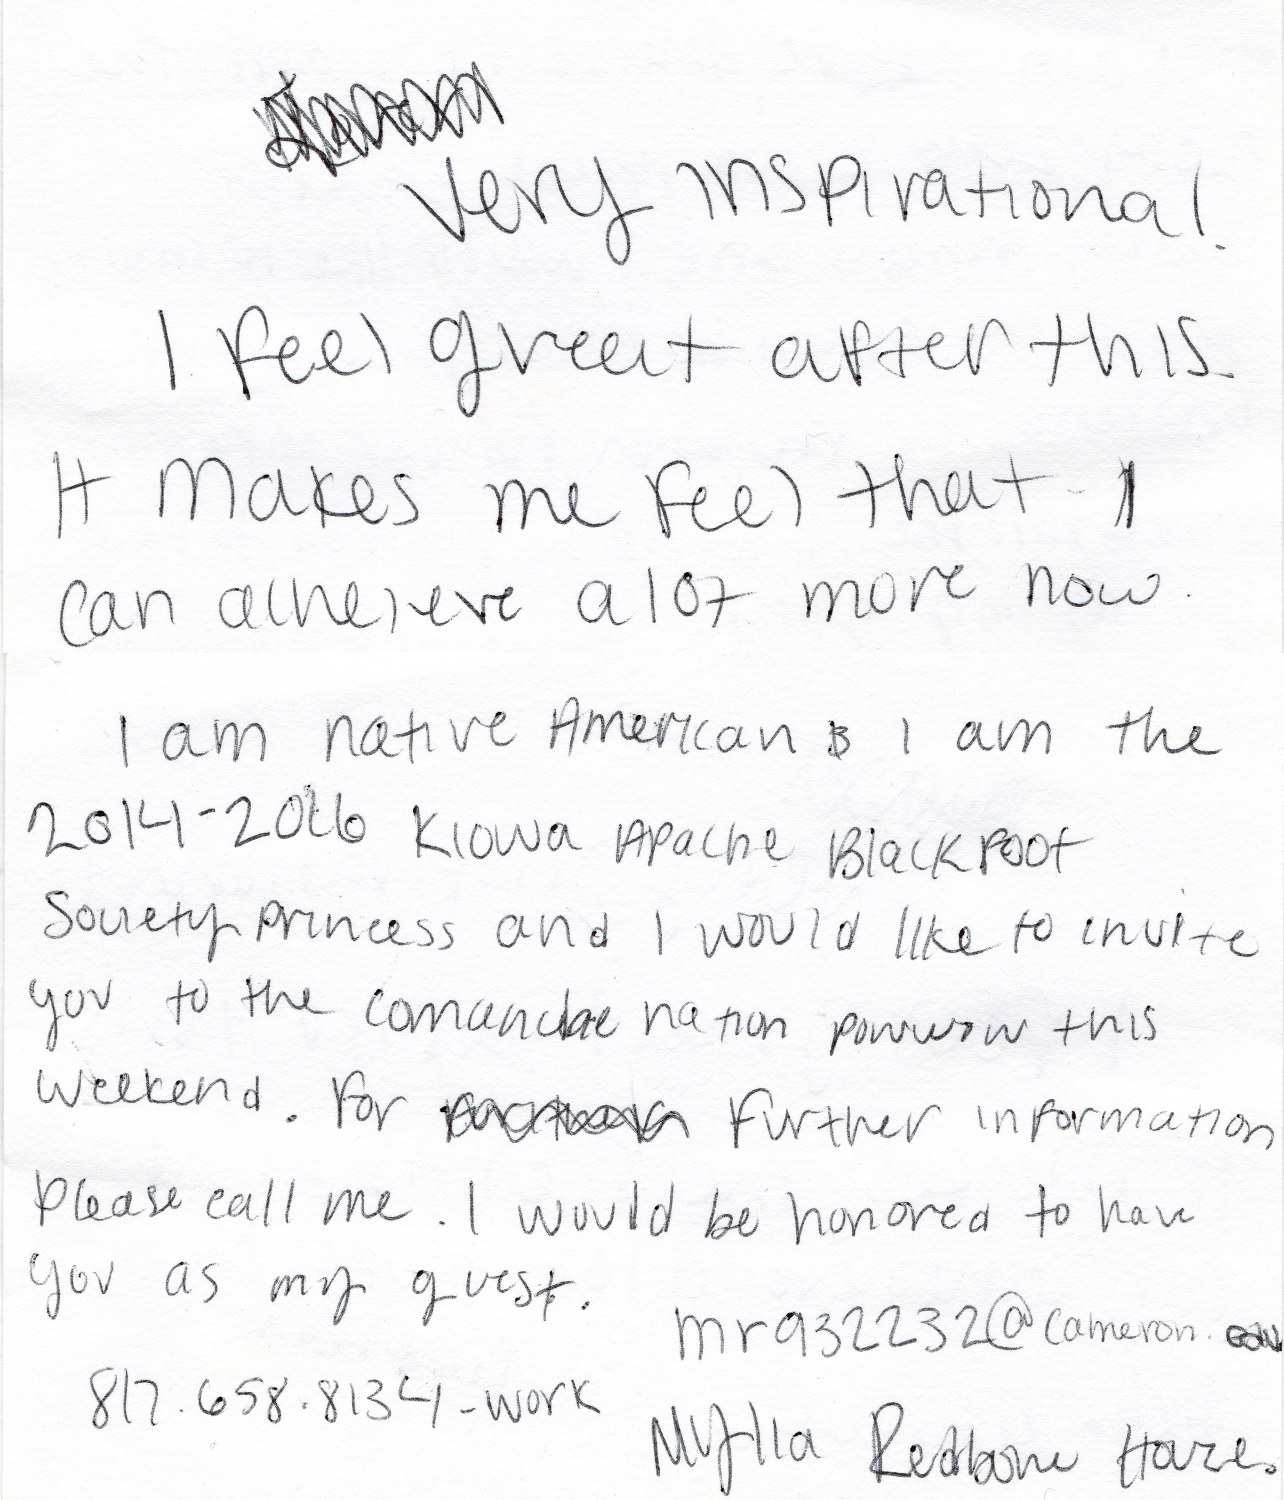 Very inspirational.
I feel great after this.
It makes me feel that I
can acheieve a lot more now.
I am native American & I am the
2014-2016 Kiowa Apache Blackfoot
Society princess and I would like to invite
you to the comanche nation powwow this
weekend. For further information
please call me. I would be honored to have
you as my guest.
mr932232@cameron.edu
817.658.8134-work
Mylla Redbone Haze.